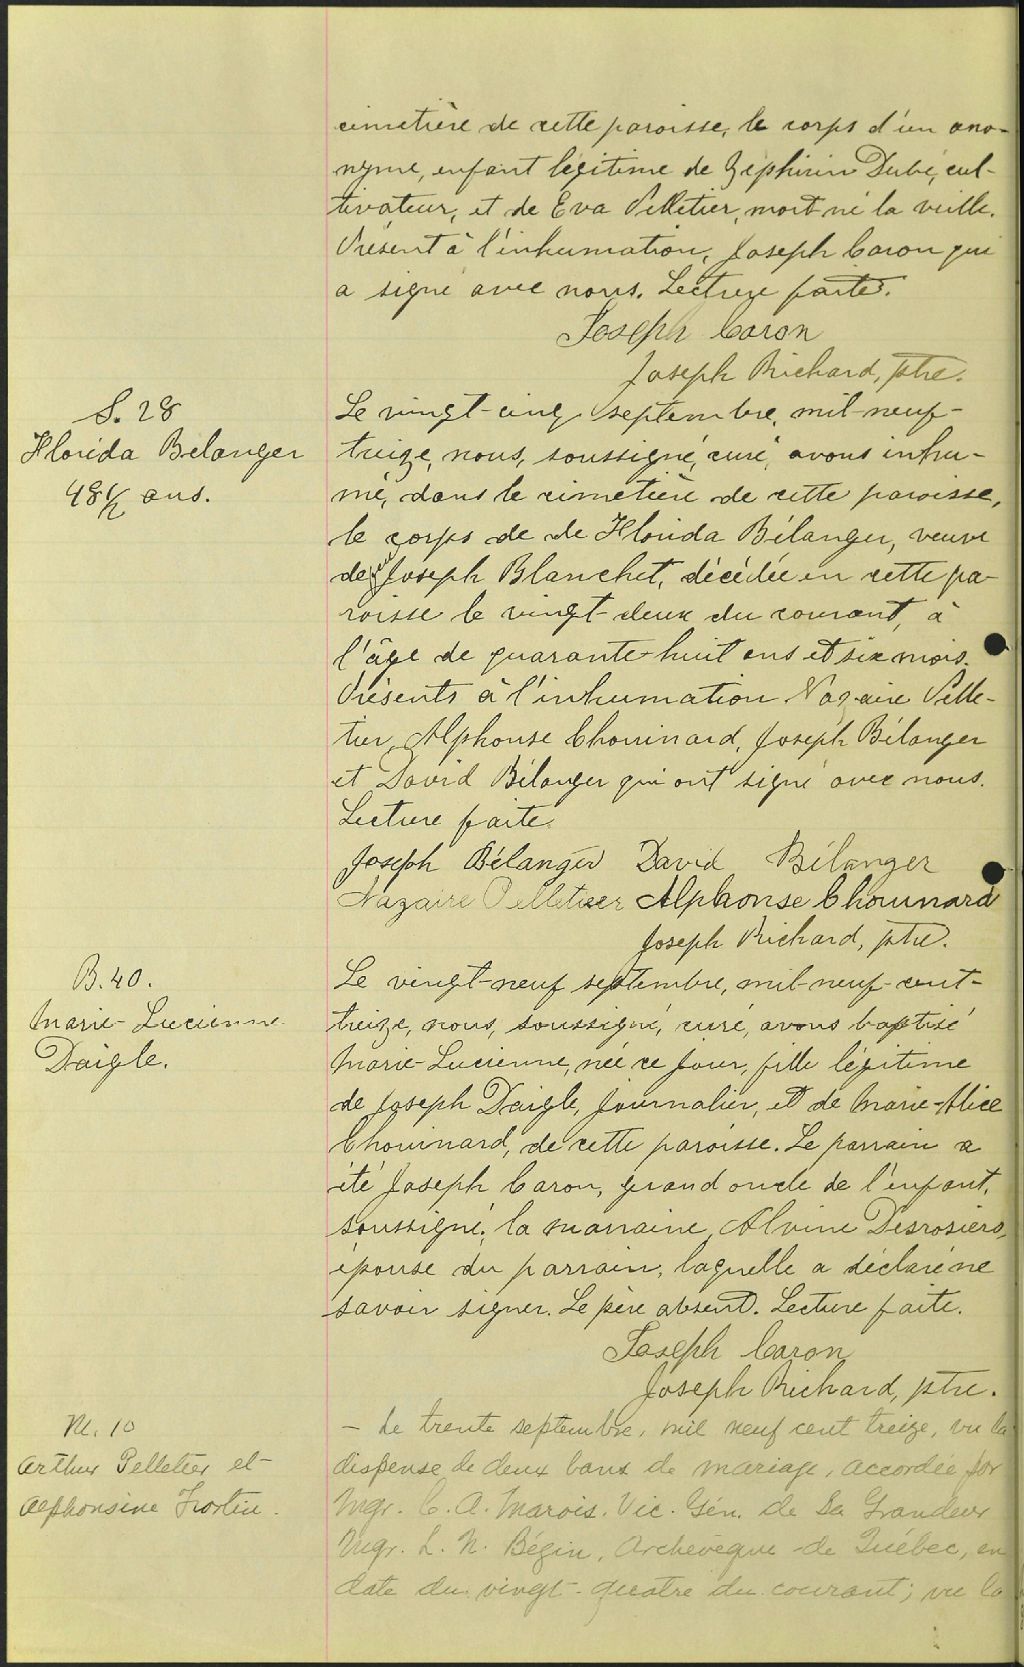 cimetière de cette paroisse, le corps d'un ano-
nyme, enfant légitime de Zéphirin Dubé, cul-
tivateur, et de Eva Pelletier, mort-né la veille.
Présent à l'inhumation, Joseph Caron qui
a signé avec nous. Lecture faite.
Joseph Caron
Joseph Richard, ptre.
S. 28
Florida Bélanger
48 1/2 ans.
Le vingt-cinq septembre, mil-neuf-
treize, nous, soussigné, curé, avons inhu-
mé, dans le cimetière de cette paroisse,
le corps de de Florida Bélanger, veuve
de Joseph Blanchet, décédée en cette pa-
roisse le vingt-deux du courant, à
l'âge de quarante-huit ans et six mois.
Présents à l'inhumation Nazaire Pelle-
tier, Alphonse Chouinard, Joseph Bélanger
et David Bélanger qui ont signé avec nous.
Lecture faite.
Joseph Bélanger David Bélanger
Nazaire Pelletier Alphonse Chouinard
Joseph Richard, ptre.
B. 40.
Marie-Lucienne
Daigle.
Le vingt-neuf septembre, mil-neuf-cent-
treize, nous, soussigné, curé, avons baptisé
Marie-Lucienne, née ce jour, fille légitime
de Joseph Daigle, journalier, et de Marie-Alice
Chouinard, de cette paroisse. Le parrain a
été Joseph Caron, grand oncle de l'enfant,
soussigné; la marraine, Alvine Desrosiers,
épouse du parrain, laquelle a déclaré ne
savoir signer. Le père absent. Lecture faite.
Joseph Caron
Joseph Richard, ptre.
M. 10
Arthur Pelletier et
Alphonsine Fortin.
- Le trente septembre, mil neuf cent treize, vu la
dispense de deux bans de mariage, accordée par
Mgr. C. A. Marois. Vic. Gén. de Sa Grandeur
Mgr. L. N. Bégin, Archevêque de Québec, en
date du vingt-quatre du courant; vu la